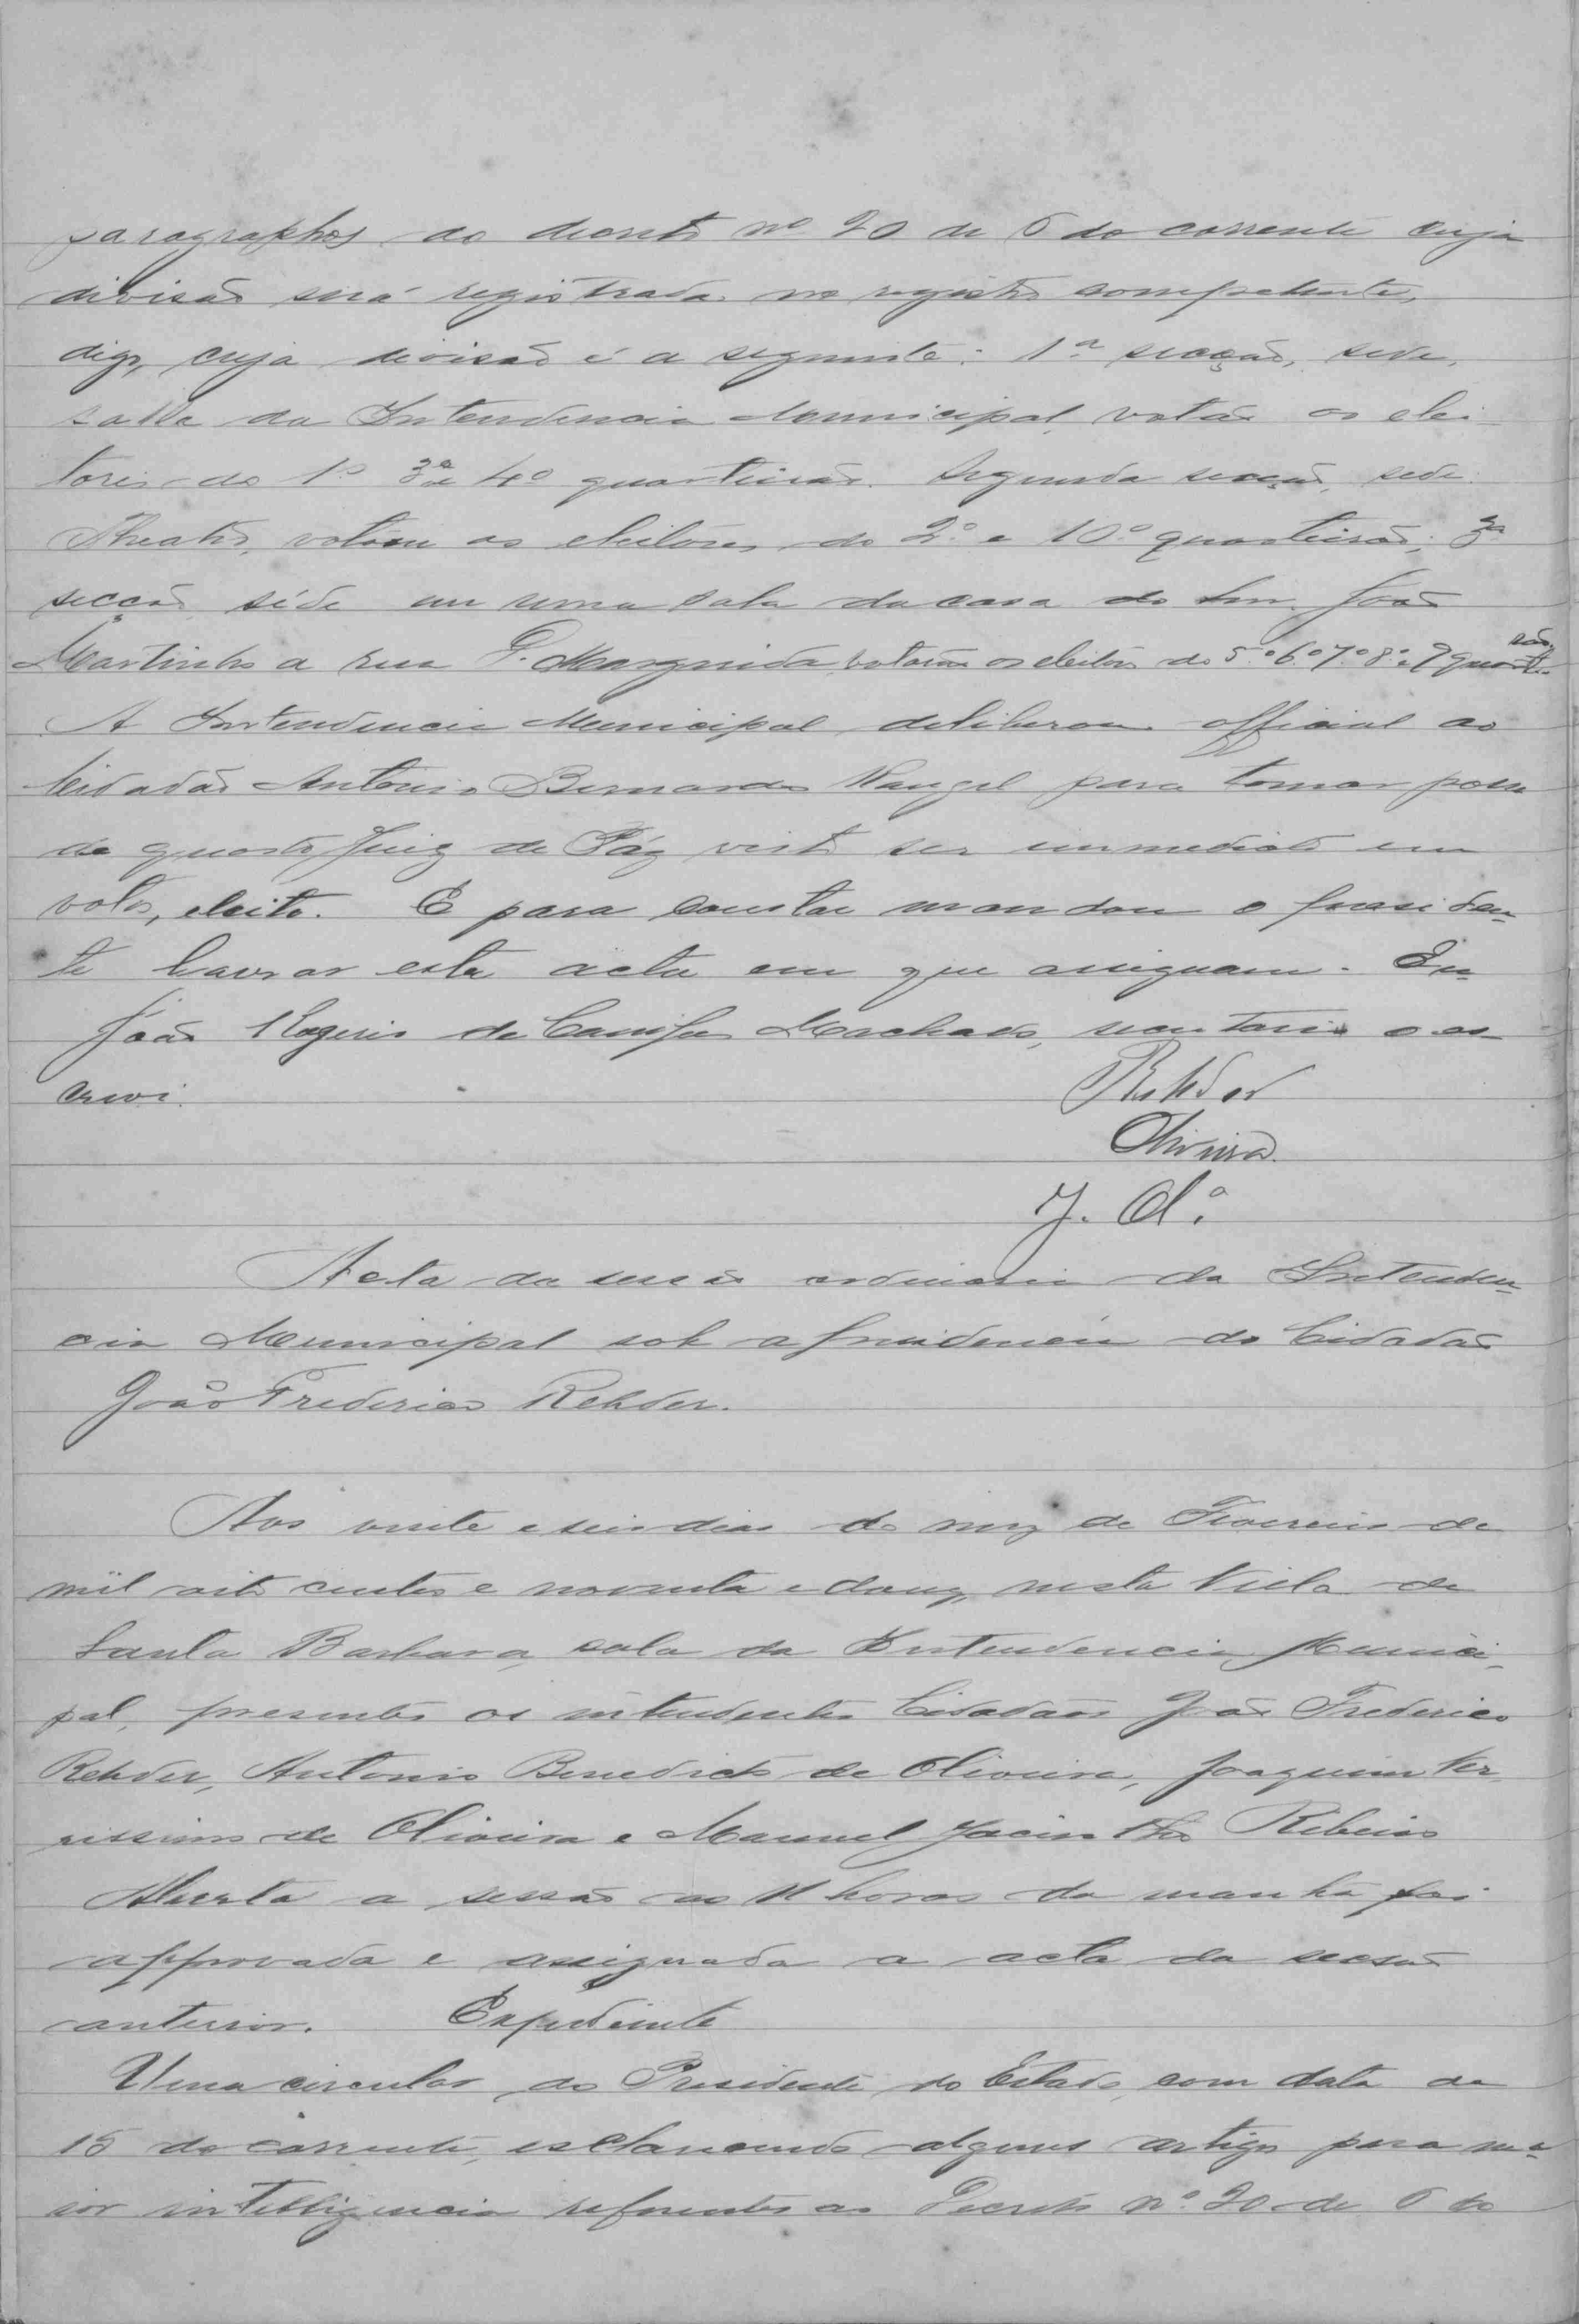 paragraphos do decreto nº 20 de 6 do corrente cuja
divisão será registrada no registro competente,
digo, cuja divisão é a seguinte: 1ª secção, sede,
salla da Intendencia Municipal, votão os elei-
tores do 1º 3º e 4º quarteirão. Segunda secção, sede
Theatro, votam os eleitores do 2º e 10º quarteirão; 3ª
secção séde em uma sala da casa do Snr. João
Martinho a rua D. Margarida votam os eleitores do 5º 6º 7º 8º e 9 quarteirão.
A Intendencia Municipal deliberou officiar ao
Cidadão Antonio Bernardes Rangel para tomar posse
de quarto Juiz de Páz visto ser immediato em
votos, eleito. E para constar mandou o presiden-
te lavrar esta acta em que assignam. Eu
João Rogerio de Campos Machado, secretario o es-
crevi.
Rehder
Oliveira
J. Olª
Acta da sessão ordinaria da Intenden-
cia Municipal sob a presidencia do Cidadão
João Frederico Rehder.
Aos vinte e seis dias do mez de Fevereiro de
mil oito centos e noventa e douz, nesta Villa de
Santa Barbara, sala da Intendencia Munici-
pal, presentes os intendentes Cidadãos João Frederico
Rehder, Antonio Benedicto de Oliveira, Joaquim Ve-
rissimo de Oliveira e Manuel Jacintho Ribeiro
Aberta a sessão as 11 horas da manhã foi
approvada e assignada a acta da secsão
anterior. Expediente
Uma circular do Presidente do Estado, com data de
15 do corrente, esclarecendo alguns artigos para ma-
ior intelligencia referentes ao Decreto nº 20 de 6 do